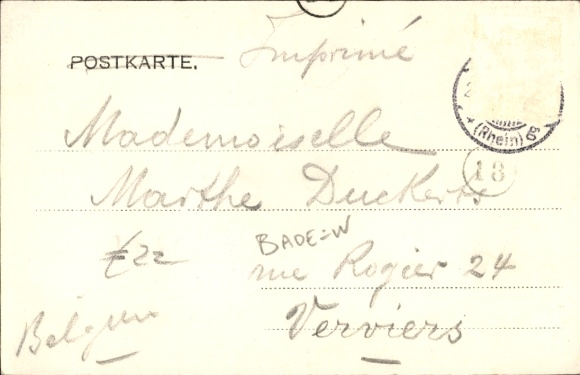 POSTKARTE. Imprimé
(Rhein)
Mademoiselle
18
Marthe Duckerts
BADE=W
rue Rogier 24
Verviers
Belgien